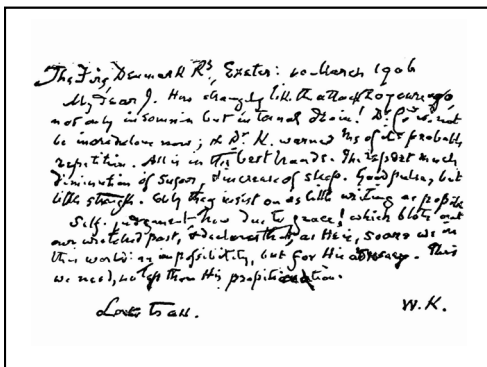 The Firs, Denmark Rd, Exeter: March 1906
My dear J. like the attack 20 years ago,
not only insomnia but Dr not
be incredulous now; Dr warned me of its probable
repetition. All is in the best hands. They report much
diminution of sugar, & increase of sleep. Good pulse, but
little strength. Only they insist on as little writing as possible
Self-judgment how due to grace! which blots out
our wretched past, & declares that, as He is, so are we in
this world: an impossibility, but for His advocacy. This
we need, no less than His propitiation.
Love to all. W.K.